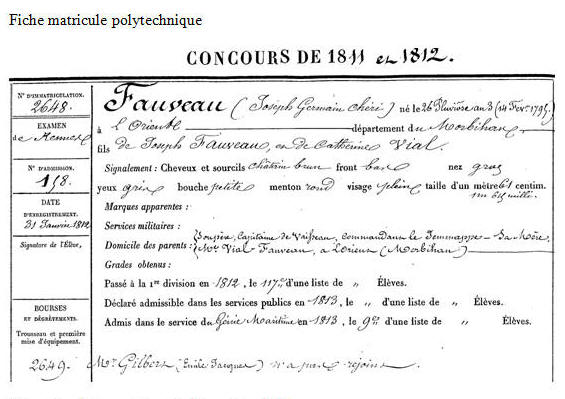 Fiche matricule polytechnique
CONCOURS DE 1811 et 1812.
N° D'IMMATRICULATION.
2648.
EXAMEN
de Rennes
N° D'ADMISSION.
158.
DATE
D'ENREGISTREMENT.
31 Janvier 1812
Signature de l'Élève,
BOURSES
ET DÉGRÈVEMENTS.
Trousseau et première
mise d'équipement.
Fauveau (Joseph Germain Chéri) né le 26 Pluviôse an 3 (14 Fevr. 1795)
à L'Orient département du Morbihan
fils de Joseph Fauveau, et de Catherine Vial.
Signalement : Cheveux et sourcils châtain brun front bas nez gros
yeux gris bouche petite menton rond visage plein taille d'un mètre 61 centim.
1m 615 milli.
Marques apparentes :
Services militaires :
Domicile des parents : Son père, Capitaine de Vaisseau, commandant le Jemmappes - Sa Mère,
Me Vial Fauveau, à Lorient (Morbihan)
Grades obtenus :
Passé à la 1re division en 1812, le 117e d'une liste de " Élèves.
Déclaré admissible dans les services publics en 1813, le " d'une liste de " Élèves.
Admis dans le service du Génie Maritime en 1813, le 9e d'une liste de " Élèves.
2649. Mr Gilbert (Emile Jacques) n'a pas rejoint.